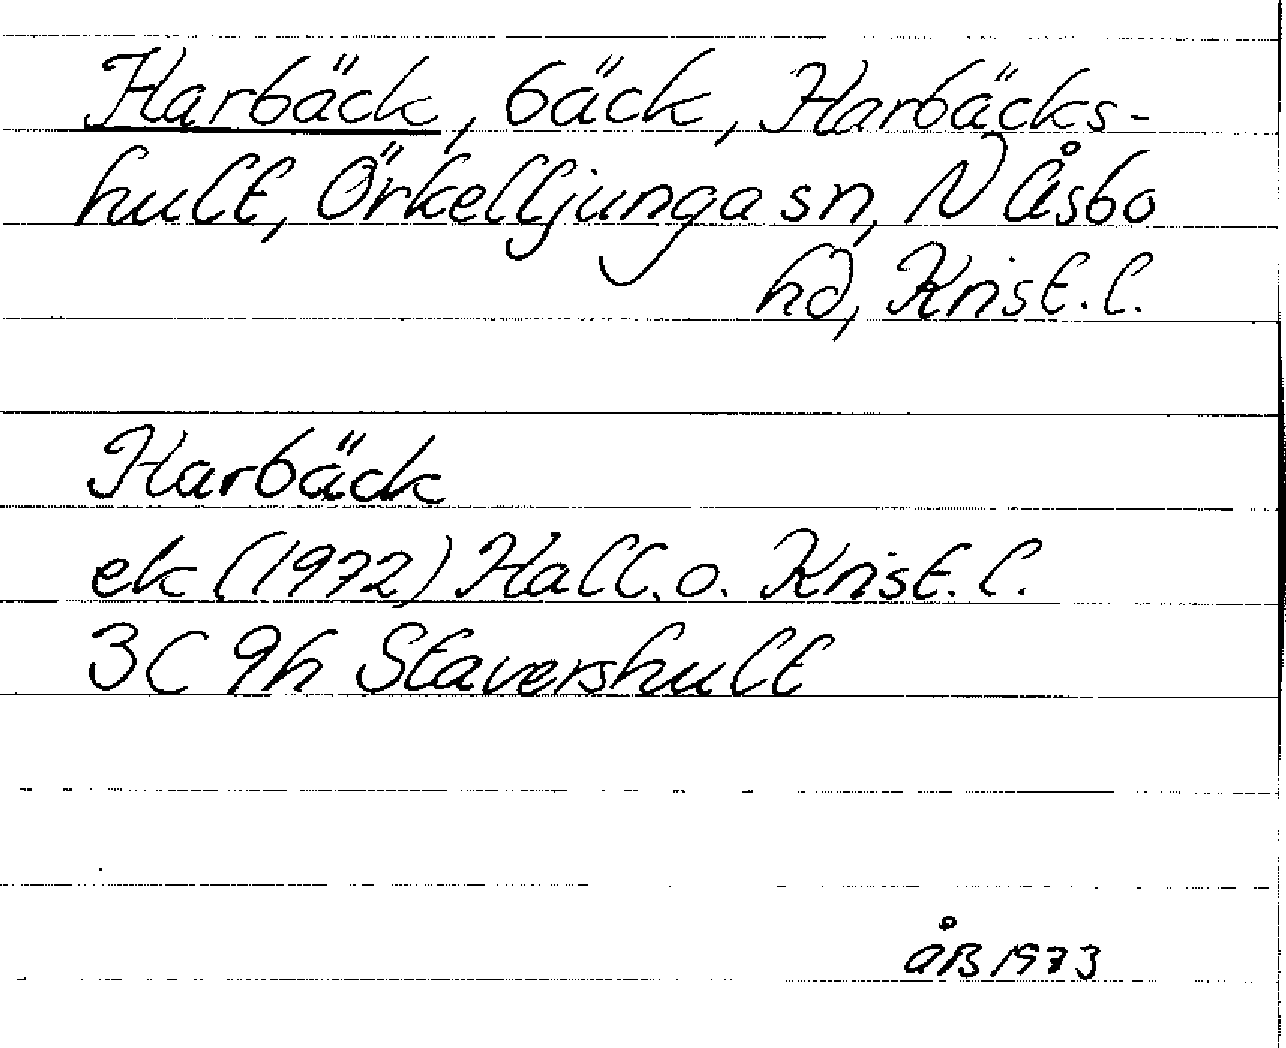 Harbäck, bäck, Harbäcks-
hult, Örkelljunga sn, N Åsbo
hd, Krist. l.
Harbäck
ek (1972) Hall. o. Krist. l.
3C 9h Stavershult
ÅB 1973